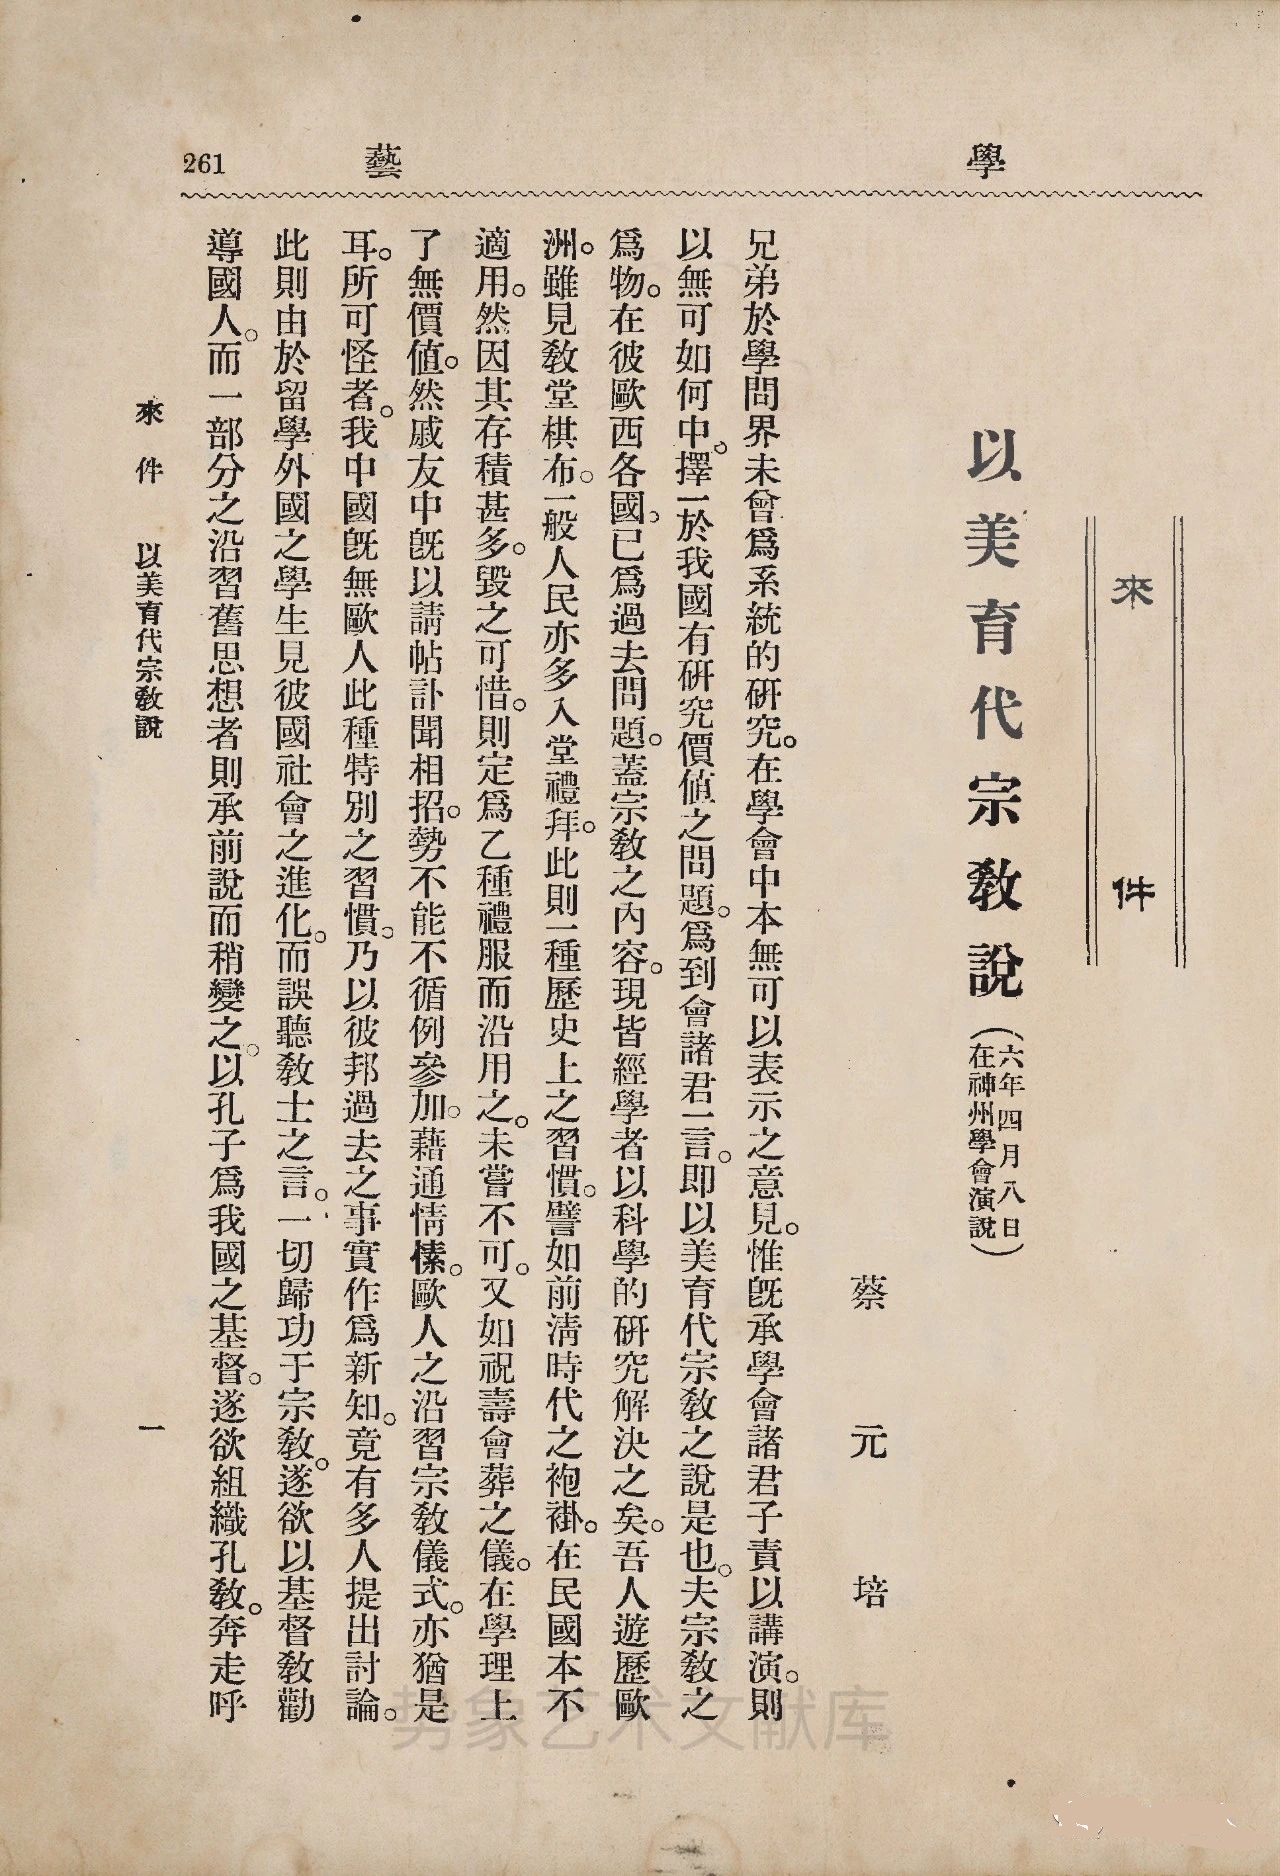 學藝
261
來件
以美育代宗教說
(六年四月八日
在神州學會演說)
蔡元培
兄弟於學問界未曾爲系統的硏究。在學會中本無可以表示之意見。惟旣承學會諸君子責以講演。則
以無可如何中。擇一於我國有硏究價値之問題。爲到會諸君一言。卽以美育代宗教之說是也。夫宗教之
爲物。在彼歐西各國。已爲過去問題。蓋宗教之內容。現皆經學者以科學的硏究解決之矣。吾人遊歷歐
洲。雖見教堂棋布。一般人民亦多入堂禮拜。此則一種歷史上之習慣。譬如前淸時代之袍褂。在民國本不
適用。然因其存積甚多。毀之可惜。則定爲乙種禮服而沿用之。未嘗不可。又如祝壽會葬之儀。在學理上
了無價値。然戚友中旣以請帖訃聞相招。勢不能不循例參加。藉通情愫。歐人之沿習宗教儀式。亦猶是
耳。所可怪者。我中國旣無歐人此種特別之習慣。乃以彼邦過去之事實作爲新知。竟有多人提出討論。
此則由於留學外國之學生見彼國社會之進化。而誤聽教士之言。一切歸功于宗教。遂欲以基督教勸
導國人。而一部分之沿習舊思想者則承前說而稍變之。以孔子爲我國之基督。遂欲組織孔教。奔走呼
來件 以美育代宗教說
一
势象艺术文献库